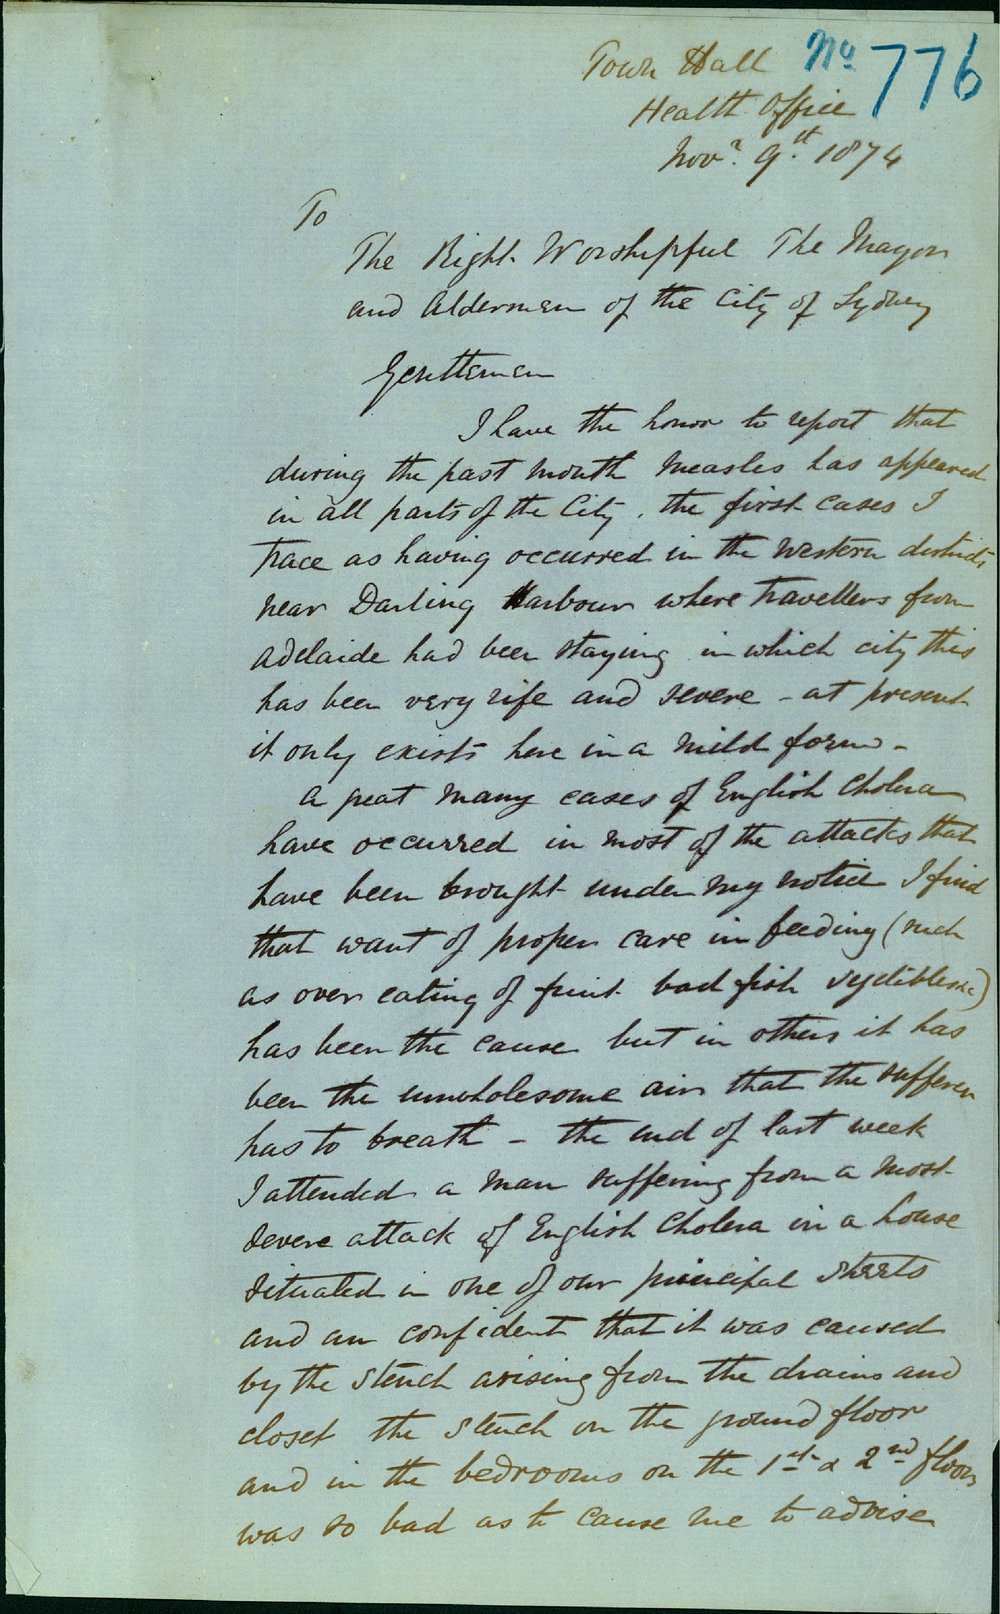 Town Hall No 776
Health Office
Novr. 9th 1874
To
The Right Worshipful The Mayor
and Aldermen of the City of Sydney
Gentlemen
I have the honor to report that
during the past month measles has appeared
in all parts of the City, the first cases I
trace as having occurred in the Western districts
near Darling Harbour where travellers from
Adelaide had been staying in which city this
has been very rife and severe - at present
it only exists here in a mild form -
A great many cases of English Cholera
have occurred in most of the attacks that
have been brought under my notice I find
that want of proper care in feeding (such
as over eating of fruit bad fish &c)
has been the cause but in others it has
been the unwholesome air that the sufferer
has to breath - the end of last week
I attended a man suffering from a most
severe attack of English Cholera in a house
situated in one of our principal streets
and am confident that it was caused
by the stench arising from the drains and
closet the stench on the ground floor
and in the bedrooms on the 1st & 2nd floors
was so bad as to cause me to advise